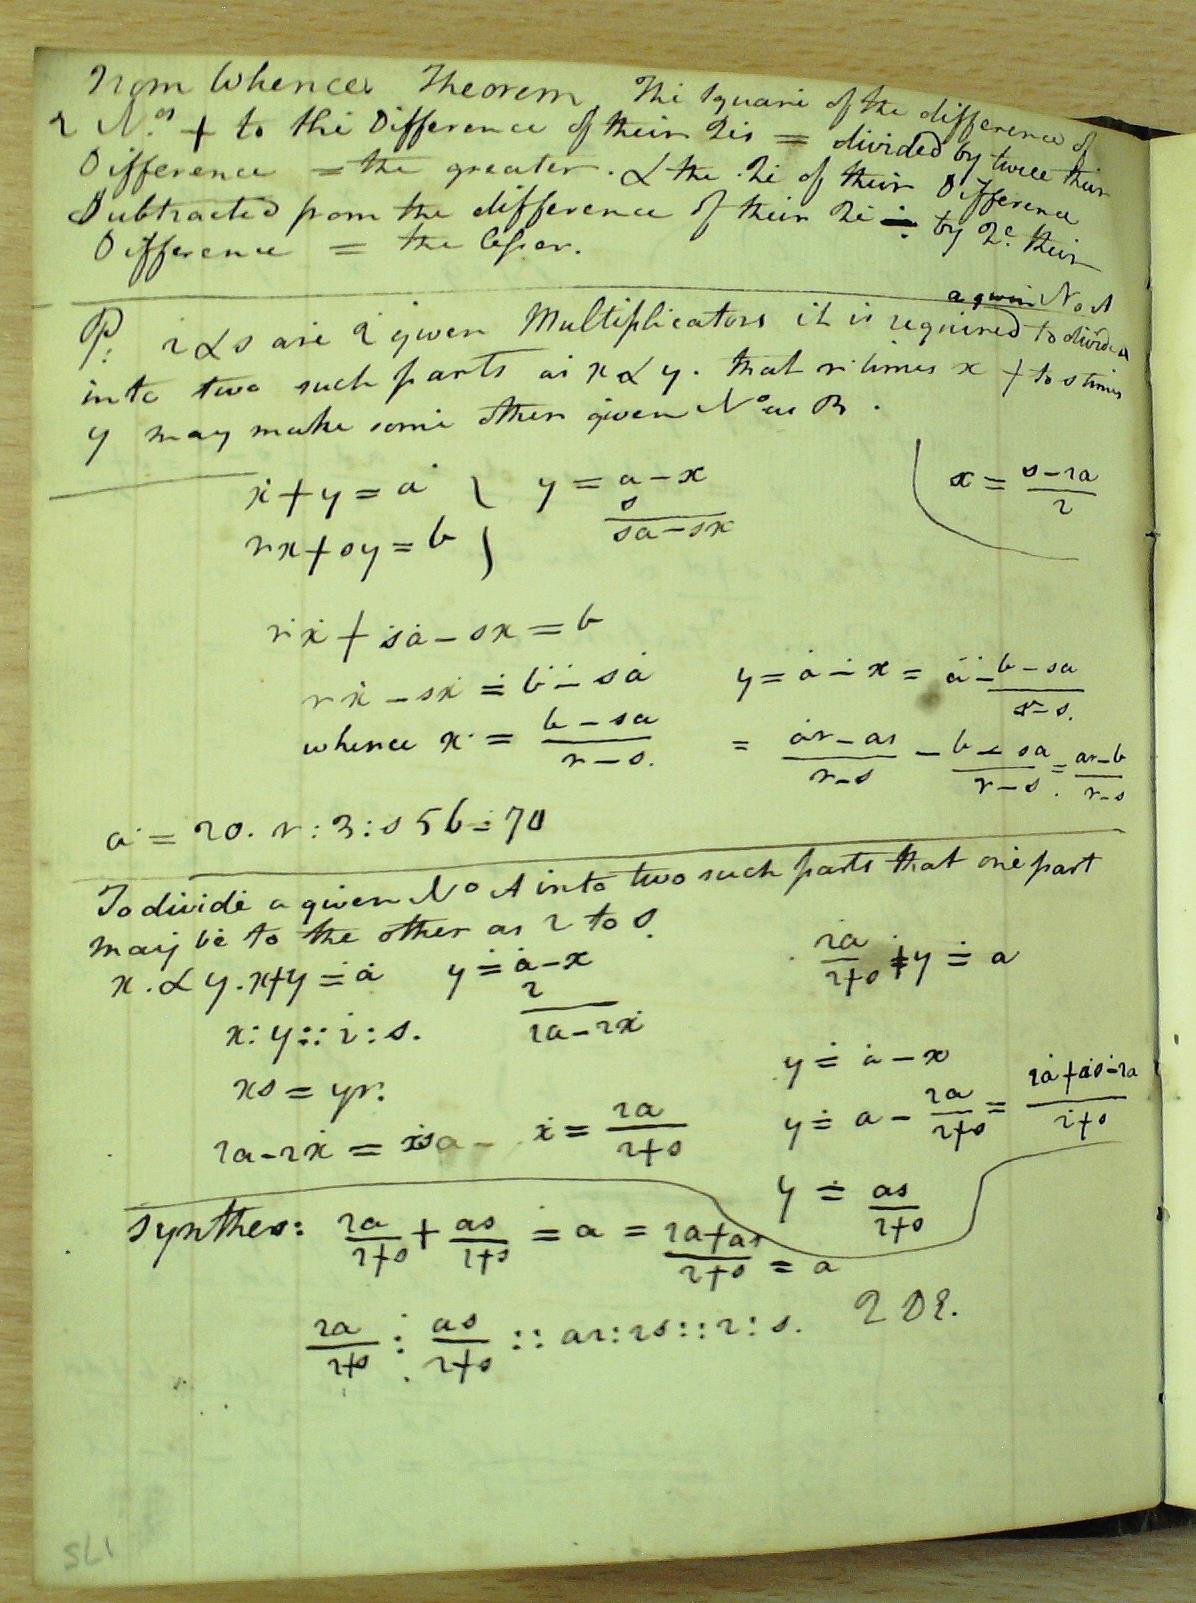 From Whence Theorem. The Square of the difference of
2 N.os + to the Difference of their 2is = divided by twice their
Difference = the greater. & the 2i of their Difference
Subtracted from the difference of their 2i ÷ by 2c. their
Difference = the lesser.
a given No A
P: r & s are 2 given Multiplicators it is required to divide
into two such parts as x & y. that r times x + to s times
y may make some other given No as B.
x + y = a } y = a - x
s
rx + sy = b } sa - sx
x = s-ra / r
rx + sa - sx = b
rx - sx = b - sa
y = a - x = a - b - sa / r - s.
whence x = b - sa / r - s.
= ar - as / r - s - b - sa / r - s = ar - b / r - s
a = 20. r : 3 : s 5 b = 70
To divide a given No A into two such parts that one part
may be to the other as r to s.
x. & y. x + y = a y = a - x
r
ra / r+s + y = a
x : y :: r : s. ra - rx
y = a - x
xs = yr.
y = a - ra / r+s = ra + as - ra / r+s
ra - rx = xsa - x = ra / r+s
y = as / r+s
Synthes: ra / r+s + as / r+s = a = ra + as / r+s = a
ra / r+s : as / r+s :: ar : rs :: r : s. Q D E.
175